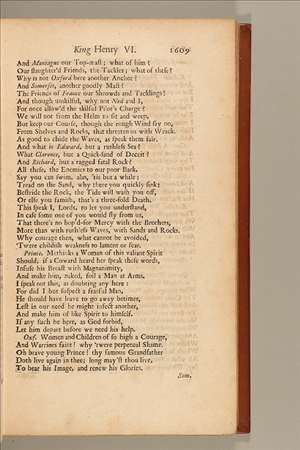 King Henry VI. 1609
And Montague our Top-mast; what of him?
Our slaughter'd Friends, the Tackles; what of these?
Why is not Oxford here another Anchor?
And Somerset, another goodly Mast?
The Friends of France our Shrowds and Tacklings?
And though unskilful, why not Ned and I,
For once allow'd the skilful Pilot's Charge?
We will not from the Helm to sit and weep,
But keep our Course, though the rough Wind say no,
From Shelves and Rocks, that threaten us with Wrack.
As good to chide the Waves, as speak them fair.
And what is Edward, but a ruthless Sea?
What Clarence, but a Quick-sand of Deceit?
And Richard, but a ragged fatal Rock?
All these, the Enemies to our poor Bark.
Say you can swim, alas, 'tis but a while;
Tread on the Sand, why there you quickly sink;
Bestride the Rock, the Tide will wash you off,
Or else you famish, that's a three-fold Death.
This speak I, Lords, to let you understand,
In case some one of you would fly from us,
That there's no hop'd-for Mercy with the Brothers,
More than with ruthless Waves, with Sands and Rocks.
Why courage then, what cannot be avoided,
'Twere childish weakness to lament or fear.
Prince. Methinks a Woman of this valiant Spirit
Should, if a Coward heard her speak these words,
Infuse his Breast with Magnanimity,
And make him, naked, foil a Man at Arms.
I speak not this, as doubting any here:
For did I but suspect a fearful Man,
He should have leave to go away betimes,
Left in our need he might infect another,
And make him of like Spirit to himself.
If any such be here, as God forbid,
Let him depart before we need his help.
Oxf. Women and Children of so high a Courage,
And Warriors faint! why 'twere perpetual Shame.
Oh brave young Prince! thy famous Grandfather
Doth live again in thee; long may'st thou live,
To bear his Image, and renew his Glories.
Som.